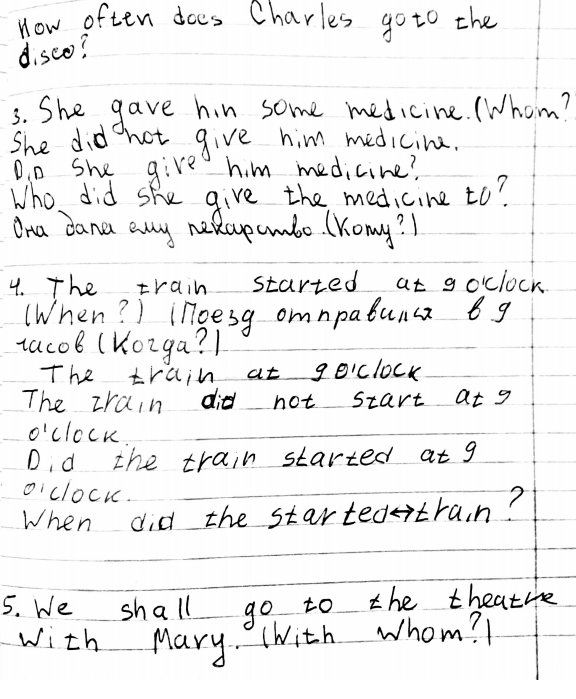 How often does Charles go to the
disco?
3. She gave hin some medicine. (Whom?
She did not give him medicine.
Did She give him medicine?
Who did she give the medicine to?
Она дала ему лекарство. (Кому?)
4. The train started at 9 o'clock
(When?) (Поезд отправился в 9
часов (Когда?)
The train at 9 o'clock
The train did not start at 9
o'clock.
Did the train started at 9
o'clock.
When did the started↔train?
5. We shall go to the theatre
With Mary. (With Whom?)